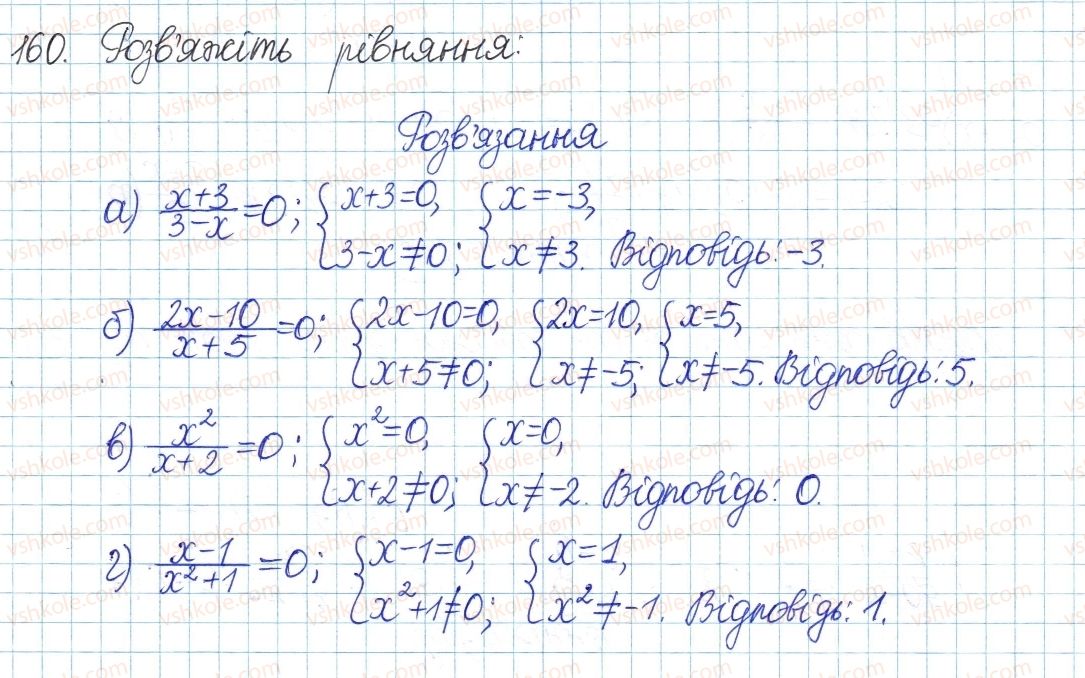 160. Розв'яжіть рівняння:
Розв'язання
а) \frac{x+3}{3-x}=0; { x+3=0, 3-x≠0; { x=-3, x≠3. Відповідь: -3.
б) \frac{2x-10}{x+5}=0; { 2x-10=0, x+5≠0; { 2x=10, x≠-5; { x=5, x≠-5. Відповідь: 5.
в) \frac{x^2}{x+2}=0; { x^2=0, x+2≠0; { x=0, x≠-2. Відповідь: 0.
г) \frac{x-1}{x^2+1}=0; { x-1=0, x^2+1≠0; { x=1, x^2≠-1. Відповідь: 1.